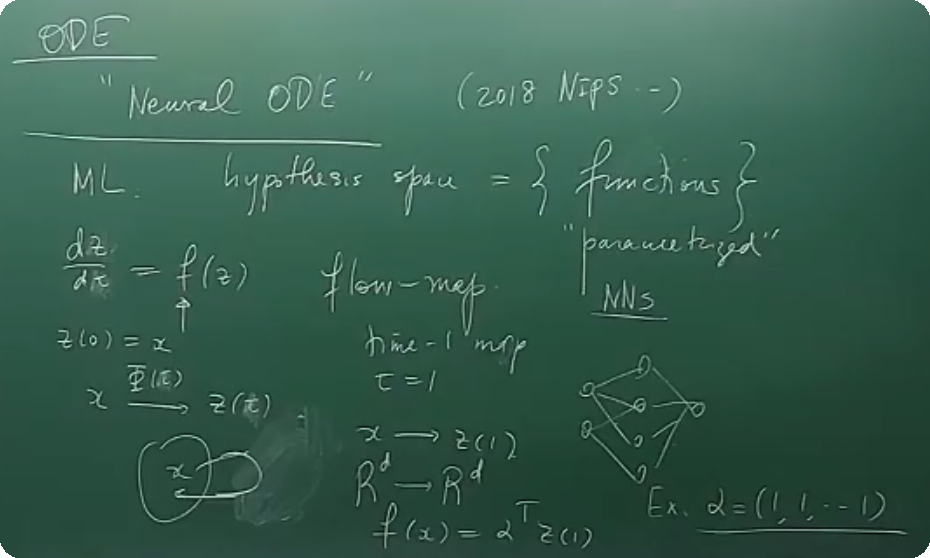 ODE
"Neural ODE" (2018 NIPS --)
ML. hypothesis space = { functions }
"parametrized"
NNs
dz/dτ = f(z)
z(0) = x
x Φ(τ) → z(τ)
x
flow-map.
time-1 map
τ = 1
x → z(1)
R^d → R^d
f(x) = α^T z(1)
Ex. α = (1, 1, -- 1)